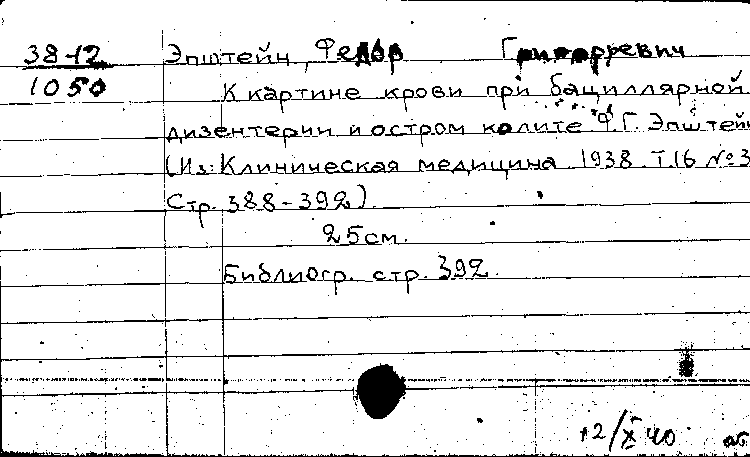 38-12 Эпштейн, Федор Григорьевич
1050 К картине крови при бациллярной
дизентерии и остром колите Ф.Г. Эпштейн
(Из: Клиническая медицина 1938 Т.16 №3
Стр. 388-392).
25см.
Библиогр. стр. 392.
12/X 40